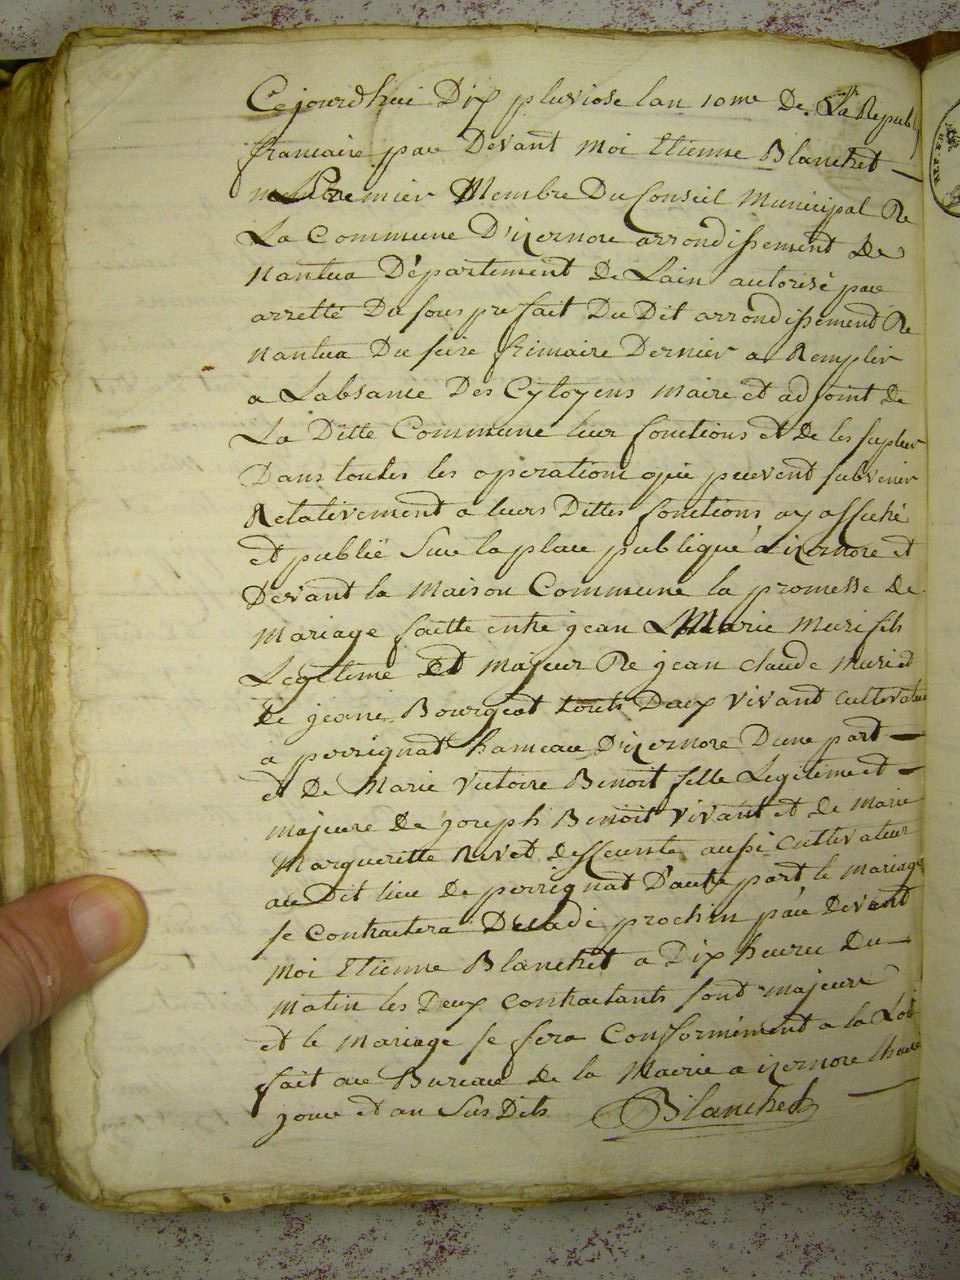 Cejourdhui Dix pluviose lan 10me De La Republ
francaise par Devant Moi Etienne Blanchet
Premier Membre Du Conseil Municipal De
La Commune D'izernore arrondissement De
Nantua Département De Lain autorisé par
arretté Du sous prefait Du Dit arrondissement De
Nantua Du seize frimaire Dernier a Remplir
a Labsance Des Cytoyens maire et adjoint de
La Ditte Commune leur fonctions et de les supleer
Dans toutes les operations qui peuvent subvenir
Relativement a leurs Dittes fonctions ay affiché
et publié Sur la place publique a izernore et
Devant la Maison Commune la promesse de
Mariage faitte entre jean Marie Muri fils
Legitime et Majeur De jean claude Muri et
de jeane Bourgeat touts Deux vivant cultivateur
a perrignat hameau D'izernore Dune part
et De Marie Victoire Benoit fille Legitime et
majeure De joseph Benoit vivant et de Marie
Margueritte Rivet deffeunte aussi cultivateur
au Dit lieu de perrignat D'autre part le mariage
se contractera Decadi prochin par devant
Moi Etienne Blanchet a Dix heures Du
Matin les Deux contractants sont majeurs
et le Mariage se fera Conformément a la Loi
fait au Bureau de la Mairie a izernore lhaure
jour et an Sus Dits Blanchet